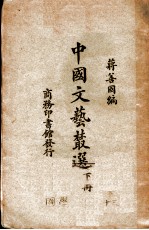 蔣善國編
中國文藝叢選
下冊
商務印書館發行